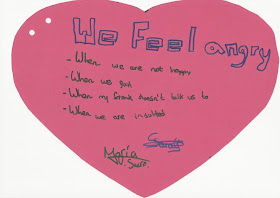 We Feel angry
- When we are not happy
- When we
- When my friend doesn't talk us to
- When we are insulted
Maria